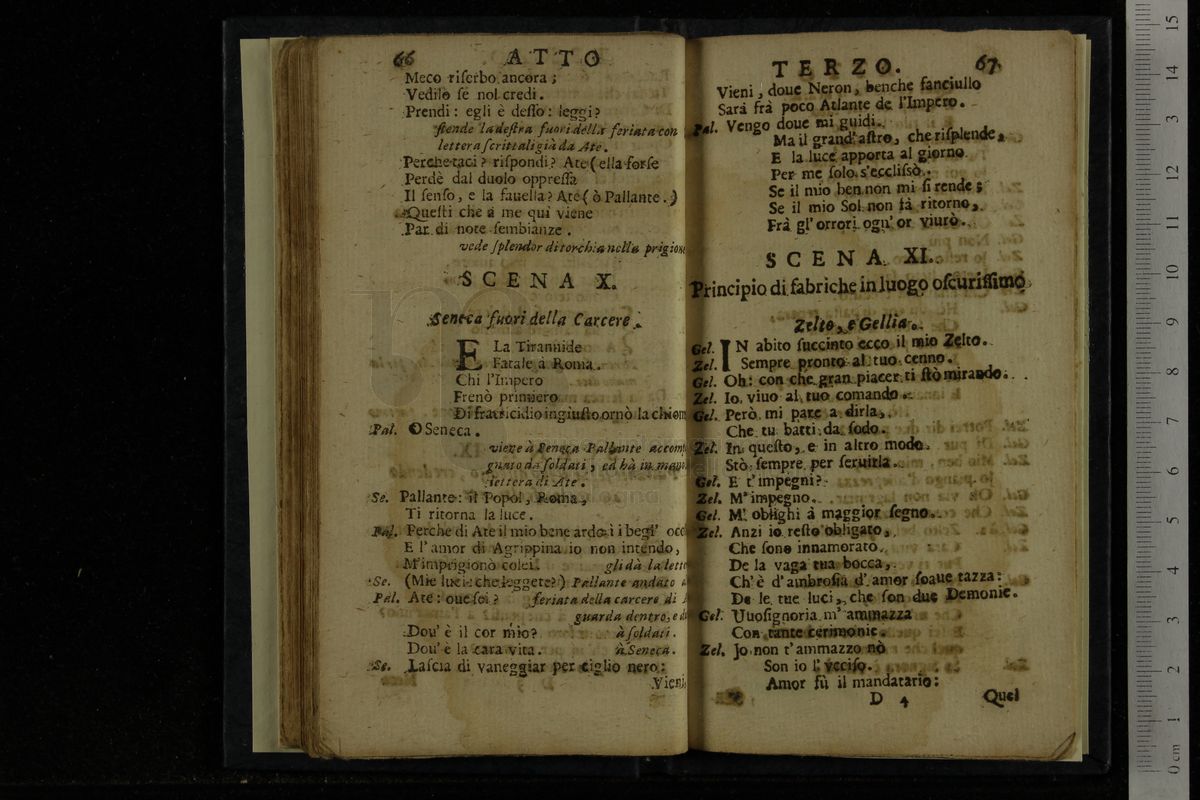 66 ATTO
Meco riſerbo ancora;
Vedilo ſe nol credi.
Prendi: egli è deſſo: leggi?
ſtende la deſtra fuori della feriata con
lettera ſcrittali già da Ate.
Perche taci? riſpondi? Ate (ella forſe
Perdè dal duolo oppreſſa
Il ſenſo, e la fauella? Ate (ò Pallante.)
Queſti che à me qui viene
Par di note ſembianze.
vede ſplendor di torchia nella prigione
SCENA X.
Seneca fuori della Carcere.
E La Tirannide
Fatale à Roma.
Chi l'Impero
Frenò primiero
Di fratricidio ingiuſto ornò la chiom
Pal. O Seneca.
viene à Seneca Pallante accom
gnato da ſoldati, ed hà in man
lettera di Ate.
Se. Pallante: il Popol, Roma,
Ti ritorna la luce.
Pal. Perche di Ate il mio bene ardo i begl' occ
E l'amor di Agrippina io non intendo,
M'imprigionò colei. gli dà la lette
Se. (Mie luci: che leggete?) Pallante andato a
Pal. Ate: oue ſei? feriata della carcere di A
guarda dentro, e di
Dou' è il cor mio? à ſoldati.
Dou' è la cara vita. à Seneca.
Se. Laſcia di vaneggiar per ciglio nero:
Vieni
TERZO. 67
Vieni, doue Neron, benche fanciullo
Sarà frà poco Atlante de l'Impero.
Pal. Vengo doue mi guidi.
Ma il grand' aſtro, che riſplende,
E la luce apporta al giorno
Per me ſolo s'eccliſsò.
Se il mio ben non mi ſi rende;
Se il mio Sol non fà ritorno,
Frà gl' orrori ogn' or viurò.
SCENA XI.
Principio di fabriche in luogo oſcuriſſimo
Zelto, e Gellia.
Gel. IN abito ſuccinto ecco il mio Zelto.
Zel. Sempre pronto al tuo cenno.
Gel. Oh: con che gran piacer ti ſtò mirando.
Zel. Io viuo al tuo comando.
Gel. Però mi pare a dirla,
Che tu batti da ſodo.
Zel. In queſto, e in altro modo
Stò ſempre per ſeruirla.
Gel. E t'impegni?
Zel. M'impegno.
Gel. M' oblighi à maggior ſegno.
Zel. Anzi io reſto obligato,
Che ſono innamorato,
De la vaga tua bocca,
Ch'è d'ambroſia d'amor ſoaue tazza:
De le tue luci, che ſon due Demonie.
Gel. Uuoſignoria m' ammazza
Con tante cerimonie.
Zel. Jo non t'ammazzo nò
Son io l' vcciſo.
Amor fù il mandatario:
D 4 Quel